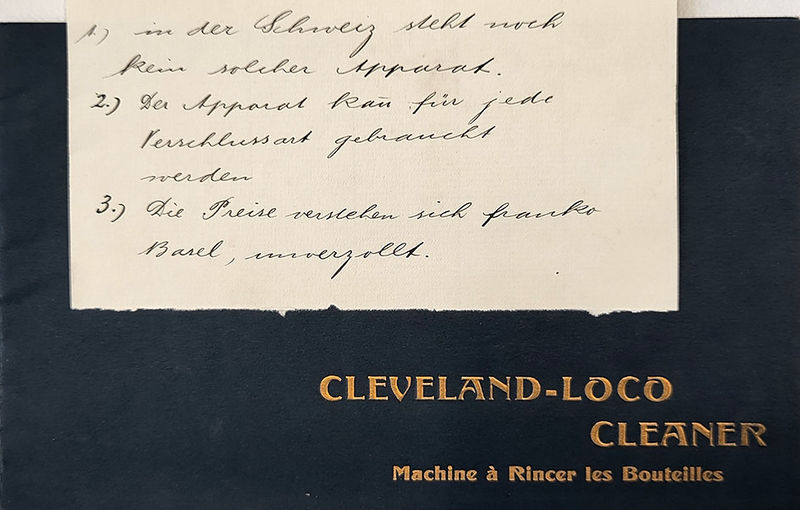 1.) in der Schweiz steht noch
kein solcher Apparat.
2.) Der Apparat kan̄ für jede
Verschlussart gebraucht
werden
3.) Die Preise verstehen sich franko
Basel, unverzollt.
CLEVELAND-LOCO
CLEANER
Machine à Rincer les Bouteilles